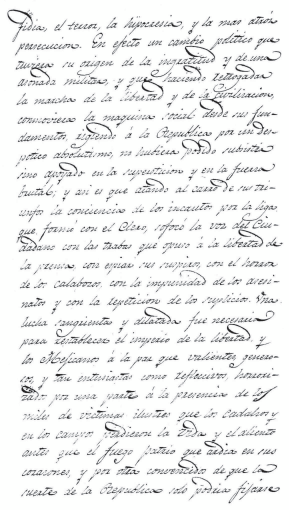 fidia, el terror, la hipocresia, y la mas atróz
persecucion. En efecto un cambio politico que
tuviera su origen de la ingratitud y de una
asonada militar, y que haciendo retrogadar
la marcha de la libertad y de la civilizacion,
conmoviera la maquina social desde sus fun-
damentos, rigiendo á la Republica por un des-
potico absolutismo, no hubiera podido subsistir
sino apoyado en la supersticion y en la fuerza
brutal; y asi es que atando al carro de sus tri-
unfos la conciencia de los incautos por la liga
que formó con el Clero, sofocó la voz del Ciu-
dadano con las trabas que opuso á la libertad de
la prensa, con espiar sus suspiros, con el horror
de los calabozos, con la impunidad de los asesi-
natos y con la repeticion de los suplicios. Una
lucha sangrienta y dilatada fue necesaria
para restablecer el imperio de la libertad, y
los Mejicanos á la par que valientes genero-
sos, y tan entusiastas como reflecsivos, horrori-
zados por una parte á la presencia de los
miles de victimas ilustres que los cadalsos y
en los campos perdieron la vida y el aliento
antes que el fuego patrio que ardia en sus
corazones, y por otra convencidos de que la
suerte de la Republica solo podria fijarse